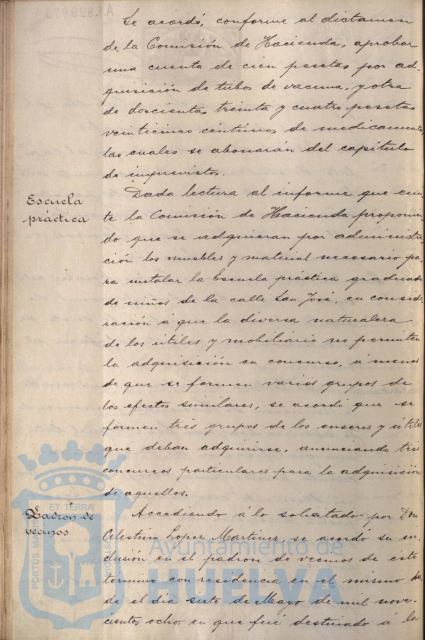 Se acordó, conforme al dictamen
de la Comisión de Hacienda, aprobar
una cuenta de cien pesetas por ad-
quisición de tubos de vacuna, y otra
de doscientas treinta y cuatro pesetas
veinticinco céntimos de medicamentos
las cuales se abonarán del capítulo
de imprevistos.
Escuela
práctica
Dada lectura al informe que emi-
te la Comisión de Hacienda proponien-
do que se adquieran por administra-
ción los muebles y material necesario pa-
ra instalar la Escuela práctica graduada
de niños de la calle San José, en conside-
ración á que la diversa naturaleza
de los útiles y mobiliario no permiten
la adquisición en concurso, á menos
de que se formen varios grupos de
los efectos similares, se acordó que se
formen tres grupos de los enseres y útiles
que deban adquirirse, anunciando tres
concursos particulares para la adquisición
de aquellos.
Padron de
vecinos
Accediendo á lo solicitado por Don
Celestino Lopez Martinez se acordó su in-
clusión en el padron de vecinos de este
termino con residencia en el mismo des-
de el día siete de Mayo de mil nove-
cientos ocho en que fué destinado a la
PORTUS MARIS ET TERRÆ
Ayuntamiento de
HUELVA